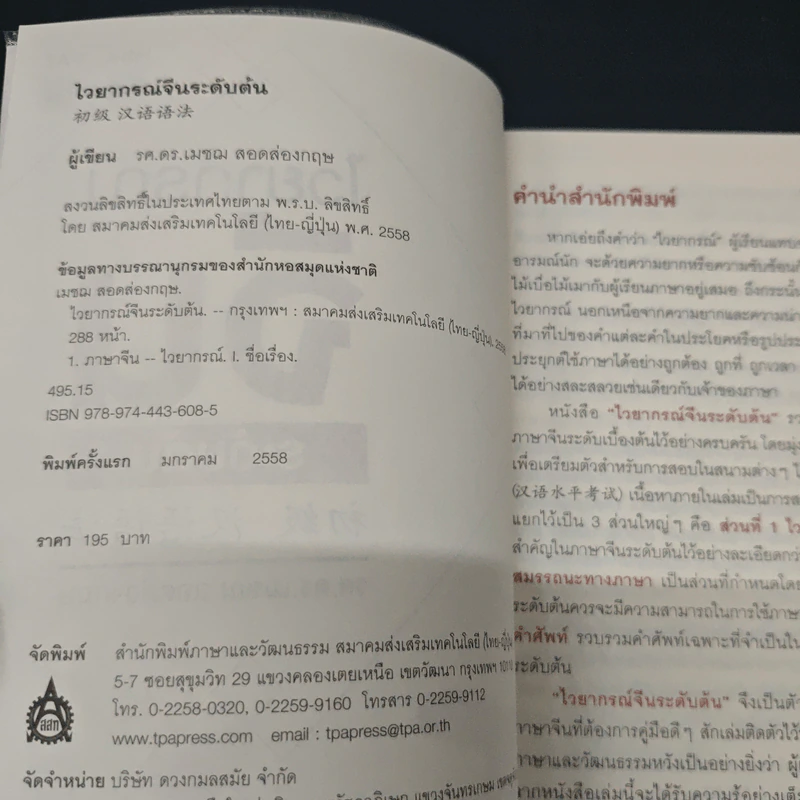 ไวยากรณ์จีนระดับต้น
初级 汉语语法
ผู้เขียน รศ.ดร.เมชฌ สอดส่องกฤษ
สงวนลิขสิทธิ์ในประเทศไทยตาม พ.ร.บ. ลิขสิทธิ์
โดย สมาคมส่งเสริมเทคโนโลยี (ไทย-ญี่ปุ่น) พ.ศ. 2558
ข้อมูลทางบรรณานุกรมของสำนักหอสมุดแห่งชาติ
เมชฌ สอดส่องกฤษ.
ไวยากรณ์จีนระดับต้น. -- กรุงเทพฯ : สมาคมส่งเสริมเทคโนโลยี (ไทย-ญี่ปุ่น),
288 หน้า.
1. ภาษาจีน -- ไวยากรณ์. I. ชื่อเรื่อง.
495.15
ISBN 978-974-443-608-5
พิมพ์ครั้งแรก มกราคม 2558
ราคา 195 บาท
จัดพิมพ์ สำนักพิมพ์ภาษาและวัฒนธรรม สมาคมส่งเสริมเทคโนโลยี (ไทย-ญี่ปุ่น
5-7 ซอยสุขุมวิท 29 แขวงคลองเตยเหนือ เขตวัฒนา กรุงเทพฯ
โทร. 0-2258-0320, 0-2259-9160 โทรสาร 0-2259-9112
www.tpapress.com email : tpapress@tpa.or.th
สสท
จัดจำหน่าย บริษัท ดวงกมลสมัย จำกัด
แขวงจันทรเกษม
คำนำสำนักพิมพ์
หากเอ่ยถึงคำว่า "ไวยากรณ์" ผู้เรียนแทบ
อารมณ์นัก จะด้วยความยากหรือความซับซ้อน
ไม้เบื่อไม้เมากับผู้เรียนภาษาอยู่เสมอ ถึงกระนั้น
ไวยากรณ์ นอกเหนือจากความยากและความน่า
ที่มาที่ไปของคำแต่ละคำในประโยคหรือรูปประ
ประยุกต์ใช้ภาษาได้อย่างถูกต้อง ถูกที่ ถูกเวลา
ได้อย่างสละสลวยเช่นเดียวกับเจ้าของภาษา
หนังสือ "ไวยากรณ์จีนระดับต้น" รว
ภาษาจีนระดับเบื้องต้นไว้อย่างครบครัน โดยมุ่ง
เพื่อเตรียมตัวสำหรับการสอบในสนามต่างๆ ไ
(汉语水平考试) เนื้อหาภายในเล่มเป็นการส
แยกไว้เป็น 3 ส่วนใหญ่ๆ คือ ส่วนที่ 1 ไว
สำคัญในภาษาจีนระดับต้นไว้อย่างละเอียดกว่
สมรรถนะทางภาษา เป็นส่วนที่กำหนดโดย
ระดับต้นควรจะมีความสามารถในการใช้ภาษา
คำศัพท์ รวบรวมคำศัพท์เฉพาะที่จำเป็นใน
ระดับต้น
"ไวยากรณ์จีนระดับต้น" จึงเป็นตั
ภาษาจีนที่ต้องการคู่มือดีๆ สักเล่มติดตัวไว้
ภาษาและวัฒนธรรมหวังเป็นอย่างยิ่งว่า ผู้
จากหนังสือเล่มนี้จะได้รับความรู้อย่างเต็ม